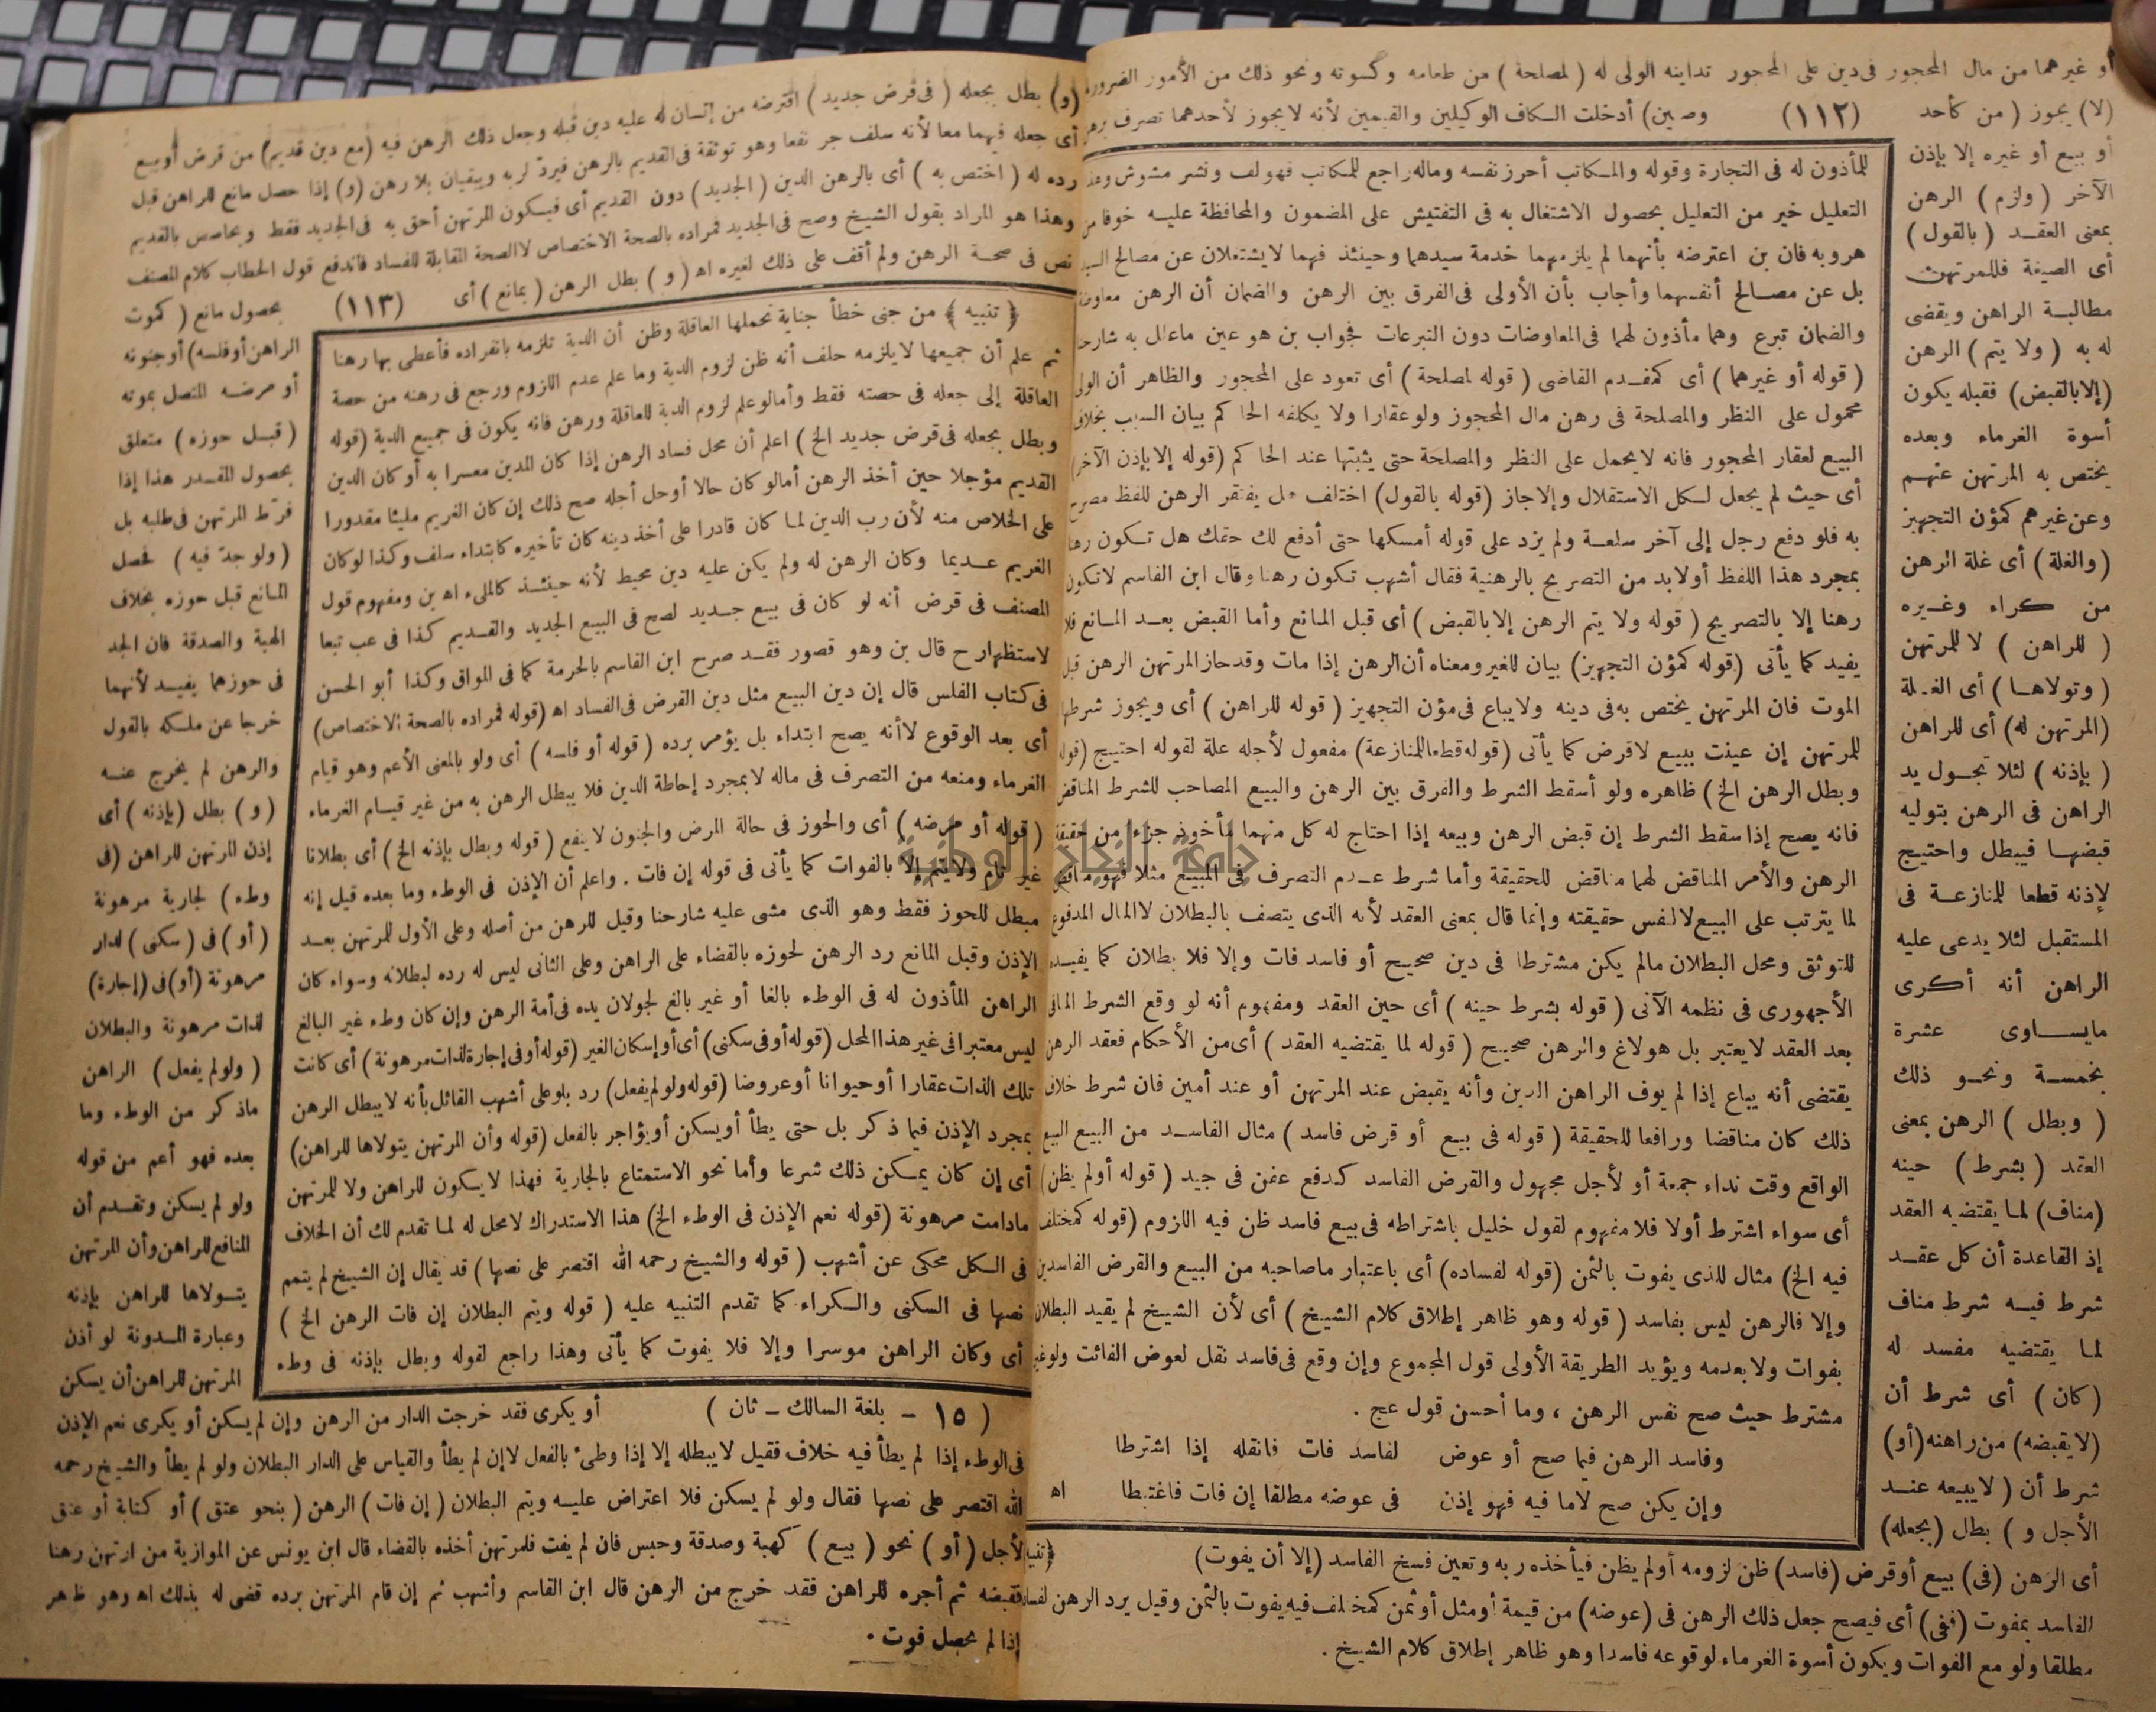 أو غيرهما من مال المحجور فى دين على المحجور تداينه الولى له ( لمصلحة ) من طعامه وكسوته ونحو ذلك من الأمور الضرورية
(لا) يجوز ( من كأحد (١١٢) وصيين) أدخلت الكاف الوكيلين والقيمين لأنه لا يجوز لأحدهما تصرف برهن
أو بيع أو غيره إلا بإذن
الآخر ( ولزم ) الرهن
بمعنى العقد ( بالقول )
أى الصيغة فللمرتهن
مطالبة الراهن ويقضى
له به ( ولا يتم ) الرهن
(إلا بالقبض) فقبله يكون
أسوة الغرماء وبعده
يختص به المرتهن عنهم
وعن غيرهم كمؤن التجهيز
(والغلة) أى غلة الرهن
من كراء وغيره
( للراهن ) لا للمرتهن
( وتولاها ) أى الغلة
(المرتهن له) أى للراهن
( بإذنه ) لئلا تجول يد
الراهن فى الرهن بتوليه
قبضها فيبطل واحتيج
لإذنه قطعا للمنازعة فى
المستقبل لئلا يدعى عليه
الراهن أنه أكرى
مايساوى عشرة
بخمسة ونحو ذلك
( وبطل ) الرهن بمعنى
العقد ( بشرط ) حينه
(مناف) لما يقتضيه العقد
إذ القاعدة أن كل عقد
شرط فيه شرط مناف
لما يقتضيه مفسد له
( كان ) أى شرط أن
(لا يقبضه) من راهنه (أو)
شرط أن ( لا يبيعه عند
الأجل و ) بطل (بجعله)
للمأذون له فى التجارة وقوله والمكاتب أحرز نفسه وماله راجع للمكاتب فهو لف ونشر مشوش وهذا
التعليل خير من التعليل بحصول الاشتغال به فى التفتيش على المضمون والمحافظة عليه خوفا من
هروبه فان بن اعترضه بأنهما لم يلزمهما خدمة سيدهما وحينئذ فهما لا يشتغلان عن مصالح السيد
بل عن مصالح أنفسهما وأجاب بأن الأولى فى الفرق بين الرهن والضمان أن الرهن معاوضة
والضمان تبرع وهما مأذون لهما فى المعاوضات دون التبرعات فجواب بن هو عين ماعلل به شارحنا
( قوله أو غيرهما ) أى كمقدم القاضى ( قوله لمصلحة ) أى تعود على المحجور والظاهر أن الولى
محمول على النظر والمصلحة فى رهن مال المحجوز ولو عقارا ولا يكلفه الحاكم بيان السبب بخلاف
البيع لعقار المحجور فانه لا يحمل على النظر والمصلحة حتى يثبتها عند الحاكم (قوله إلا بإذن الآخر)
أى حيث لم يجعل لكل الاستقلال وإلا جاز (قوله بالقول) اختلف هل يفتقر الرهن للفظ مصرح
به فلو دفع رجل إلى آخر سلعة ولم يزد على قوله أمسكها حتى أدفع لك حقك هل تكون رهنا
بمجرد هذا اللفظ أو لابد من التصريح بالرهنية فقال أشهب تكون رهنا وقال ابن القاسم لا تكون
رهنا إلا بالتصريح ( قوله ولا يتم الرهن إلا بالقبض ) أى قبل المانع وأما القبض بعد المانع فلا
يفيد كما يأتى (قوله كمؤن التجهيز) بيان للغير ومعناه أن الرهن إذا مات وقد حاز المرتهن الرهن قبل
الموت فان المرتهن يختص به فى دينه ولا يباع فى مؤن التجهيز ( قوله للراهن ) أى ويجوز شرطها
للمرتهن إن عينت ببيع لا قرض كما يأتى (قوله قطعا للمنازعة) مفعول لأجله علة لقوله احتيج (قوله
وبطل الرهن الخ) ظاهره ولو أسقط الشرط والفرق بين الرهن والبيع المصاحب للشرط المناقض
فانه يصح إذا سقط الشرط إن قبض الرهن وبيعه إذا احتاج له كل منهما مأخوذ جزءا من حقيقة
الرهن والأمر المناقض لهما مناقض للحقيقة وأما شرط عدم التصرف فى المبيع مثلا فهو مناقض
لما يترتب على البيع لا لنفس حقيقته وإنما قال بمعنى العقد لأنه الذى يتصف بالبطلان لا المال المدفوع
للتوثق ومحل البطلان مالم يكن مشترطا فى دين صحيح أو فاسد فات وإلا فلا بطلان كما يفيده
الأجهورى فى نظمه الآتى ( قوله بشرط حينه ) أى حين العقد ومفهوم أنه لو وقع الشرط المنافى
بعد العقد لا يعتبر بل هو لاغ والرهن صحيح ( قوله لما يقتضيه العقد ) أى من الأحكام فعقد الرهن
يقتضى أنه يباع إذا لم يوف الراهن الدين وأنه يقبض عند المرتهن أو عند أمين فان شرط خلاف
ذلك كان مناقضا ورافعا للحقيقة ( قوله فى بيع أو قرض فاسد ) مثال الفاسد من البيع البيع
الواقع وقت نداء جمعة أو لأجل مجهول والقرض الفاسد كدفع عفن فى جيد ( قوله أو لم يظن )
أى سواء اشترط أولا فلا مفهوم لقول خليل باشتراطه فى بيع فاسد ظن فيه اللزوم (قوله كمختلف
فيه الخ) مثال للذى يفوت بالثمن (قوله لفساده) أى باعتبار ماصاحبه من البيع والقرض الفاسدين
وإلا فالرهن ليس بفاسد ( قوله وهو ظاهر إطلاق كلام الشيخ ) أى لأن الشيخ لم يقيد البطلان
بفوات ولا بعدمه ويؤيد الطريقة الأولى قول المجموع وإن وقع فى فاسد نقل لعوض الفائت ولو غير
مشترط حيث صح نفس الرهن ، وما أحسن قول عج .
وفاسد الرهن فيما صح أو عوض لفاسد فات فانقله إذا اشترطا
وإن يكن صح لاما فيه فهو إذن فى عوضه مطلقا إن فات فاغتبطا اه
أى الرهن (فى) بيع أو قرض (فاسد) ظن لزومه أو لم يظن فيأخذه ربه وتعين فسخ الفاسد (إلا أن يفوت)
الفاسد بمفوت (ففى) أى فيصح جعل ذلك الرهن فى (عوضه) من قيمة أو مثل أو ثمن كمختلف فيه يفوت بالثمن وقيل يرد الرهن لفساده
مطلقا ولو مع الفوات ويكون أسوة الغرماء لوقوعه فاسدا وهو ظاهر إطلاق كلام الشيخ .
(و) بطل بجعله ( فى قرض جديد ) اقترضه من إنسان له عليه دين قبله وجعل ذلك الرهن فيه (مع دين قديم) من قرض أو بيع
أى جعله فيهما معا لأنه سلف جر نفعا وهو توثقة فى القديم بالرهن فيرد لربه ويبقيان بلا رهن (و) إذا حصل مانع للراهن قبل
رده له ( اختص به ) أى بالرهن الدين ( الجديد ) دون القديم أى فيكون المرتهن أحق به فى الجديد فقط ويحاصص بالقديم
وهذا هو المراد بقول الشيخ وصح فى الجديد فمراده بالصحة الاختصاص لا الصحة المقابلة للفساد فاندفع قول الحطاب كلام المصنف
نص فى صحة الرهن ولم أقف على ذلك لغيره اه ( و ) بطل الرهن ( بمانع ) أى (١١٣) بحصول مانع ( كموت
الراهن أو فلسه) أو جنونه
أو مرضه المتصل بموته
( قبل حوزه ) متعلق
بحصول المقدر هذا إذا
فرّط المرتهن فى طلبه بل
( ولو جدّ فيه ) فحصل
المانع قبل حوزه بخلاف
الهبة والصدقة فان الجد
فى حوزهما يفيد لأنهما
خرجا عن ملكه بالقول
والرهن لم يخرج عنه
( و ) بطل (بإذنه ) أى
إذن المرتهن للراهن (فى
وطء ) لجارية مرهونة
( أو ) فى ( سكنى ) لدار
مرهونة (أو) فى (إجارة)
لذات مرهونة والبطلان
( ولو لم يفعل ) الراهن
ماذكر من الوطء وما
بعده فهو أعم من قوله
ولو لم يسكن وتقدم أن
المنافع للراهن وأن المرتهن
يتولاها للراهن بإذنه
وعبارة المدونة لو أذن
المرتهن للراهن أن يسكن
﴿ تنبيه ﴾ من جنى خطأ جناية تحملها العاقلة وظن أن الدية تلزمه بانفراده فأعطى بها رهنا
ثم علم أن جميعها لا يلزمه حلف أنه ظن لزوم الدية وما علم عدم اللزوم ورجع فى رهنه من حصة
العاقلة إلى جعله فى حصته فقط وأما لو علم لزوم الدية للعاقلة ورهن فانه يكون فى جميع الدية (قوله
وبطل بجعله فى قرض جديد الخ ) اعلم أن محل فساد الرهن إذا كان المدين معسرا به أو كان الدين
القديم مؤجلا حين أخذ الرهن أما لو كان حالا أو حل أجله صح ذلك إن كان الغريم مليئا مقدورا
على الخلاص منه لأن رب الدين لما كان قادرا على أخذ دينه كان تأخيره كابتداء سلف وكذا لو كان
الغريم عديما وكان الرهن له ولم يكن عليه دين محيط لأنه حينئذ كالملىء اه بن ومفهوم قول
المصنف فى قرض أنه لو كان فى بيع جديد لصح فى البيع الجديد والقديم كذا فى عب تبعا
لاستظهار ح قال بن وهو قصور فقد صرح ابن القاسم بالحرمة كما فى المواق وكذا أبو الحسن
فى كتاب الفلس قال إن دين البيع مثل دين القرض فى الفساد اه (قوله فمراده بالصحة الاختصاص)
أى بعد الوقوع لا أنه يصح ابتداء بل يؤمر برده ( قوله أو فلسه ) أى ولو بالمعنى الأعم وهو قيام
الغرماء ومنعه من التصرف فى ماله لا بمجرد إحاطة الدين فلا يبطل الرهن به من غير قيام الغرماء
( قوله أو مرضه ) أى والحوز فى حالة المرض والجنون لا ينفع ( قوله وبطل بإذنه الخ ) أى بطلانا
غير تام ولا يتم إلا بالفوات كما يأتى فى قوله إن فات . واعلم أن الإذن فى الوطء وما بعده قيل إنه
مبطل للحوز فقط وهو الذى مشى عليه شارحنا وقيل للرهن من أصله وعلى الأول للمرتهن بعد
الإذن وقبل المانع رد الرهن لحوزه بالقضاء على الراهن وعلى الثانى ليس له رده لبطلانه وسواء كان
الراهن المأذون له فى الوطء بالغا أو غير بالغ لجولان يده فى أمة الرهن وإن كان وطء غير البالغ
ليس معتبرا فى غير هذا المحل (قوله أو فى سكنى) أى أو إسكان الغير (قوله أو فى إجارة لذات مرهونة) أى كانت
تلك الذات عقارا أو حيوانا أو عروضا (قوله ولو لم يفعل) رد بلو على أشهب القائل بأنه لا يبطل الرهن
بمجرد الإذن فيما ذكر بل حتى يطأ أو يسكن أو يؤاجر بالفعل (قوله وأن المرتهن يتولاها للراهن)
أى إن كان يمكن ذلك شرعا وأما نحو الاستمتاع بالجارية فهذا لا يكون للراهن ولا للمرتهن
مادامت مرهونة (قوله نعم الإذن فى الوطء الخ) هذا الاستدراك لا محل له لما تقدم لك أن الخلاف
فى الكل محكى عن أشهب ( قوله والشيخ رحمه الله اقتصر على نصها ) قد يقال إن الشيخ لم يتمم
نصها فى السكنى والكراء كما تقدم التنبيه عليه ( قوله ويتم البطلان إن فات الرهن الخ )
أى وكان الراهن موسرا وإلا فلا يفوت كما يأتى وهذا راجع لقوله وبطل بإذنه فى وطء
( ١٥ - بلغة السالك - ثان ) أو يكرى فقد خرجت الدار من الرهن وإن لم يسكن أو يكرى نعم الإذن
فى الوطء إذا لم يطأ فيه خلاف فقيل لا يبطله إلا إذا وطئ بالفعل لا إن لم يطأ والقياس على الدار البطلان ولو لم يطأ والشيخ رحمه
الله اقتصر على نصها فقال ولو لم يسكن فلا اعتراض عليه ويتم البطلان ( إن فات ) الرهن ( بنحو عتق ) أو كتابة أو عتق
لأجل ( أو ) نحو ( بيع ) كهبة وصدقة وحبس فان لم يفت فللمرتهن أخذه بالقضاء قال ابن يونس عن الموازية من ارتهن رهنا
فقبضه ثم أجره للراهن فقد خرج من الرهن قال ابن القاسم وأشهب ثم إن قام المرتهن برده قضى له بذلك اه وهو ظاهر
إذا لم يحصل فوت .
جامعة النجاح الوطنية